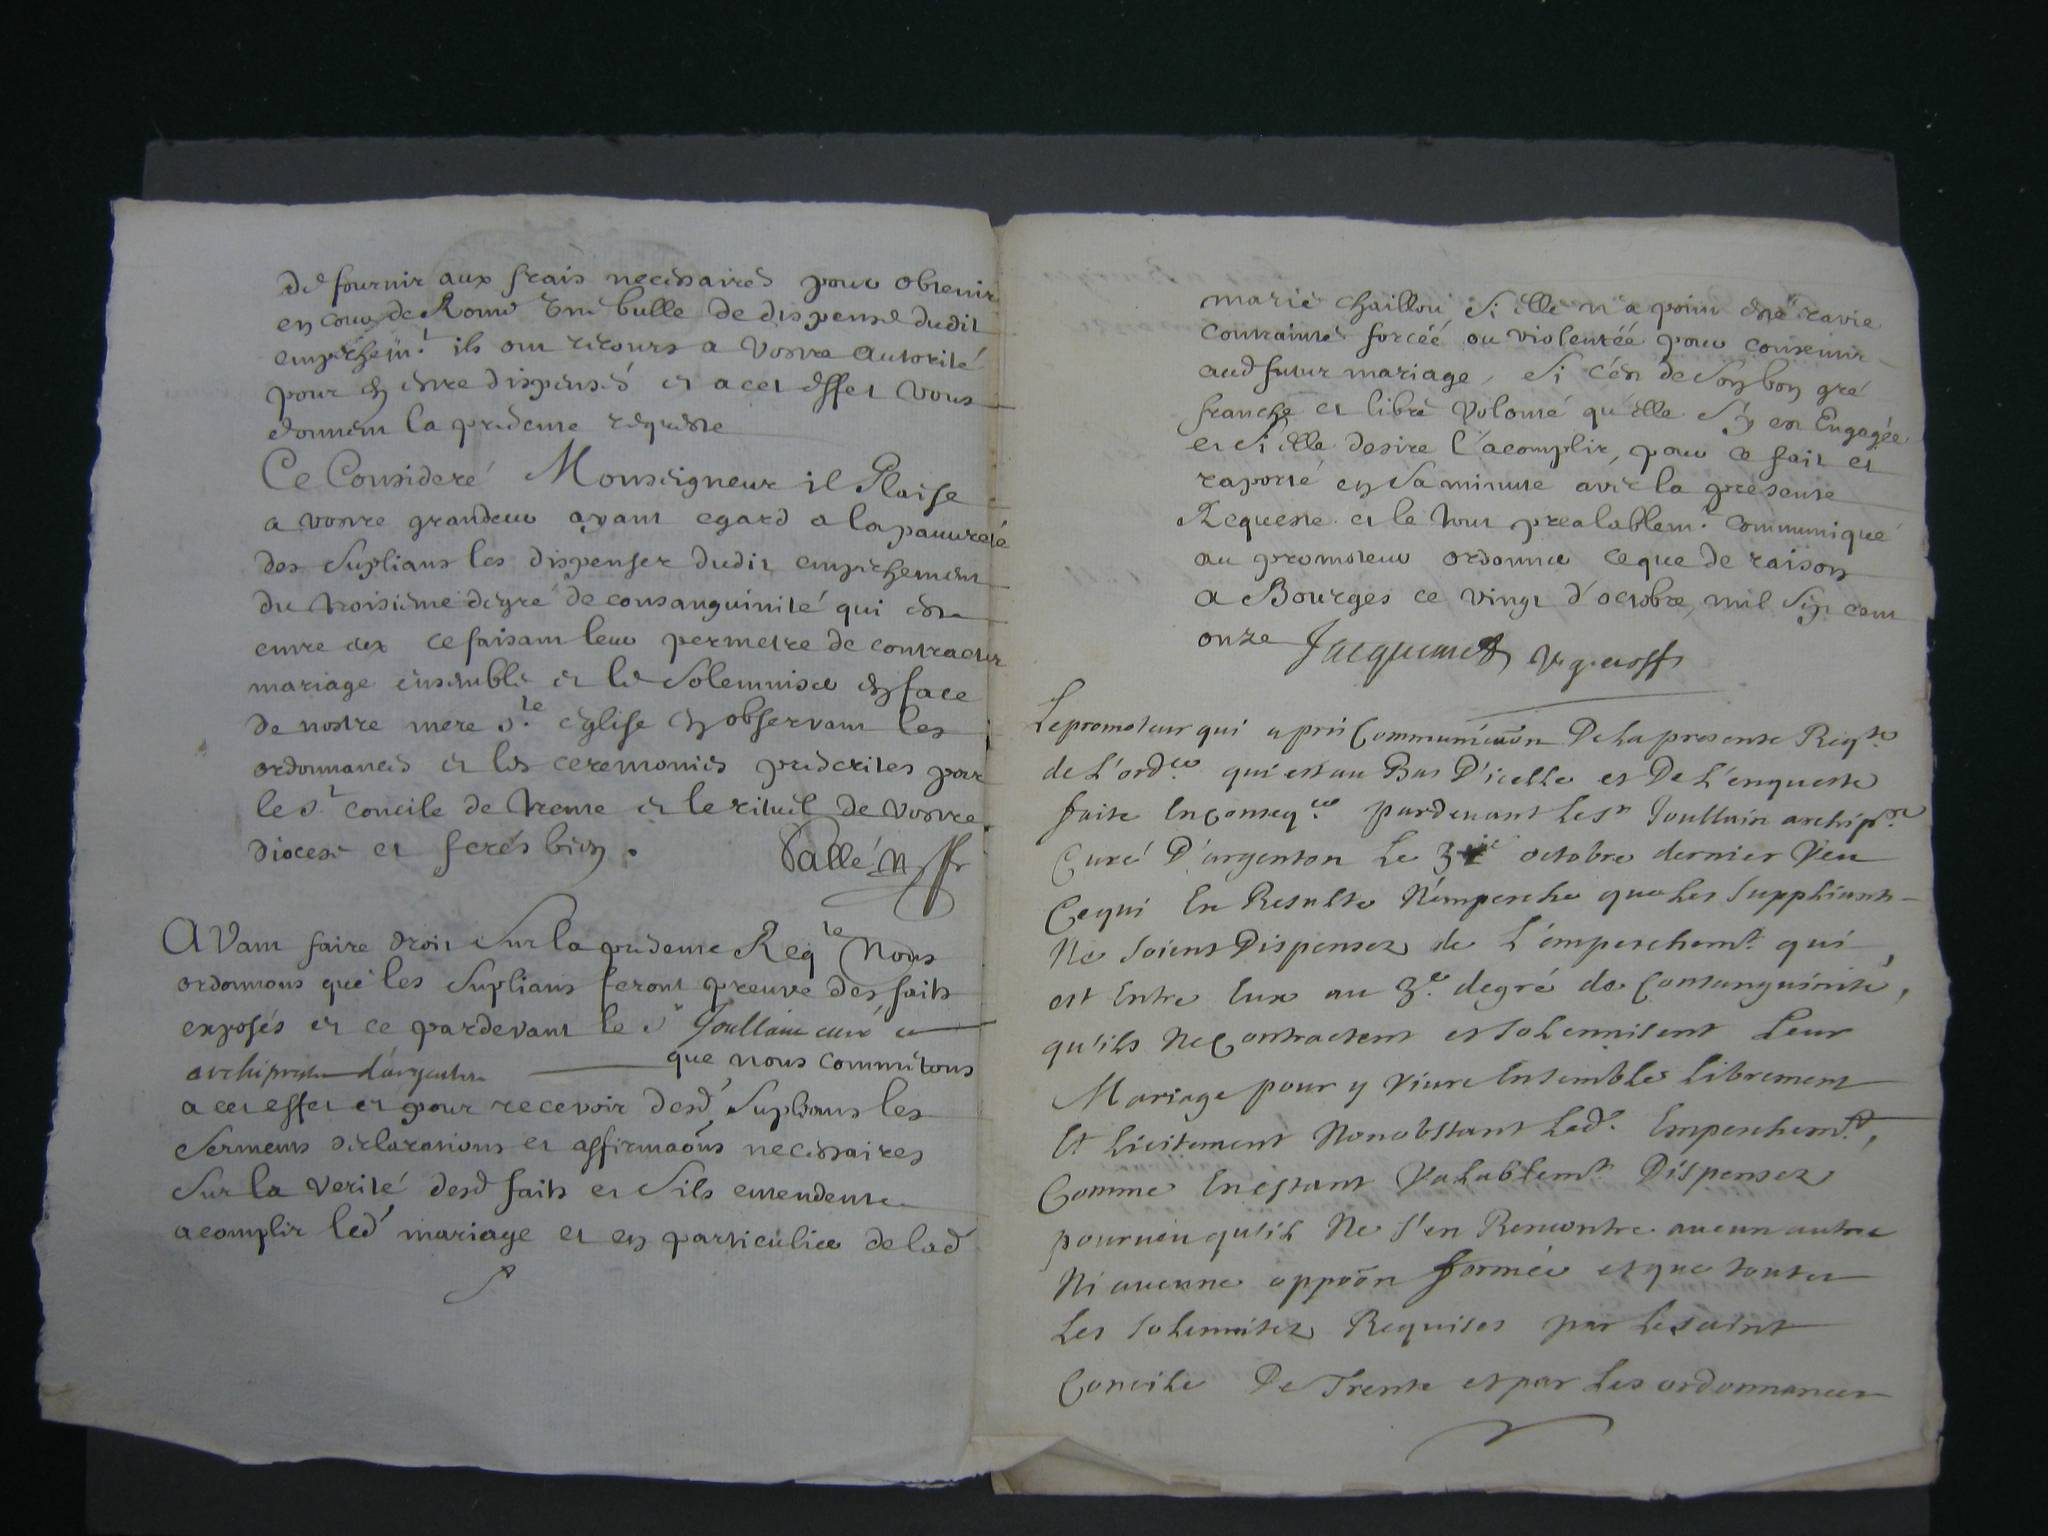 de fournir aux frais necessaires pour obtenir
en cour de Rome une bulle de dispense dudit
empeschemt. ils ont recours a vostre autorité
pour en estre dispensés et a cet effet vous
donnent la presente requeste
Ce Consideré Monseigneur il Plaise
a vostre grandeur ayant egard a la pauvreté
des Suplians les dispenser dudit empeschement
du troisieme degré de consanguinité qui est
entre eux ce faisant leur permetre de contracter
mariage ensemble et le Solemniser en face
de nostre mere ste. eglise en observant les
ordonnances et les ceremonies prescrites par
le st. concile de trente et le rituel de vostre
diocese et ferés bien.
Avant faire droit Sur la presente Reqte Nous
ordonnons que les Suplians feront preuve des faits
exposés et ce pardevant le sr Joullain curé et
archiprestre d'argenton que nous commetons
a cet effet et pour recevoir desd Suplians les
Sermens declarations et affirmaōns necessaires
Sur la verité desd faits et S'ils entendent
acomplir led mariage et en particulier de lad
marie chaillou Si elle n'a point esté ravie
contrainte forcéé ou violentéé pour consentir
aud futur mariage, Si c'est de Son bon gré
franche et libre volonté qu'elle S'y est Engagée
et Si elle desire l'acomplir, pour ce fait et
raporté en Sa minute avec la presente
Requeste et le tout prealablemt. communiqué
au promoteur ordonner ce que de raison
a Bourges ce vingt d'octobre mil Sept cent
onze Jacquemet
Le promoteur qui a pris Communicaōn De la presente Reqte
de L'ordce qui est au Bas D'icelle et De L'enqueste
faite En conseqce pardevant Le Sr Joullain archiptre
Curé D'argenton Le 31e octobre dernier Veu
Ce qui En Resulte N'empesche que Les Supphiants
Ne Soient Dispensez de L'empeschemt. qui
est Entre Eux au 3e. degré de Consanguinité,
qu'ils Ne Contractent et Solennisent Leur
Mariage pour y Vivre Ensemble Librement
Et Licitement Nonobstant Led. Empeschemt,
Comme En estant Valablemt. Dispensez
pourveu qu'il Ne S'en Rencontre aucun autre
Ni aucune oppoōn formée et que toutes
Les Solennitez Requises par Le Saint
Concile De Trente et par Les ordonnances